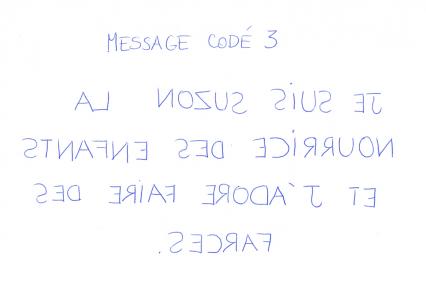 MESSAGE CODÉ 3
JE SUIS SUZON LA
NOURRICE DES ENFANTS
ET J'ADORE FAIRE DES
FARCES.